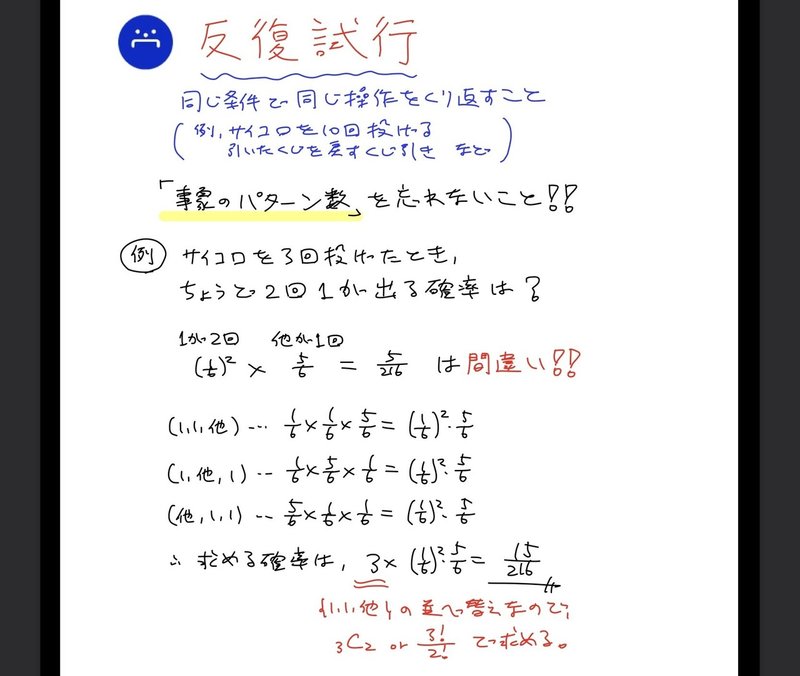 反復試行
同じ条件で同じ操作をくり返すこと
(例, サイコロを10回投げる
引いたくじを戻すくじ引き など)
「事象のパターン数」を忘れないこと!!
例 サイコロを3回投げたとき,
ちょうど2回1が出る確率は?
1が2回 他が1回
(1/6)² × 5/6 = 5/216 は間違い!!
(1,1,他) … 1/6 × 1/6 × 5/6 = (1/6)²・5/6
(1,他,1) … 1/6 × 5/6 × 1/6 = (1/6)²・5/6
(他,1,1) … 5/6 × 1/6 × 1/6 = (1/6)²・5/6
∴ 求める確率は, 3 × (1/6)²・5/6 = 15/216
{1,1,他}の並べ替えなので,
₃C₂ or 3!/2! で求める。